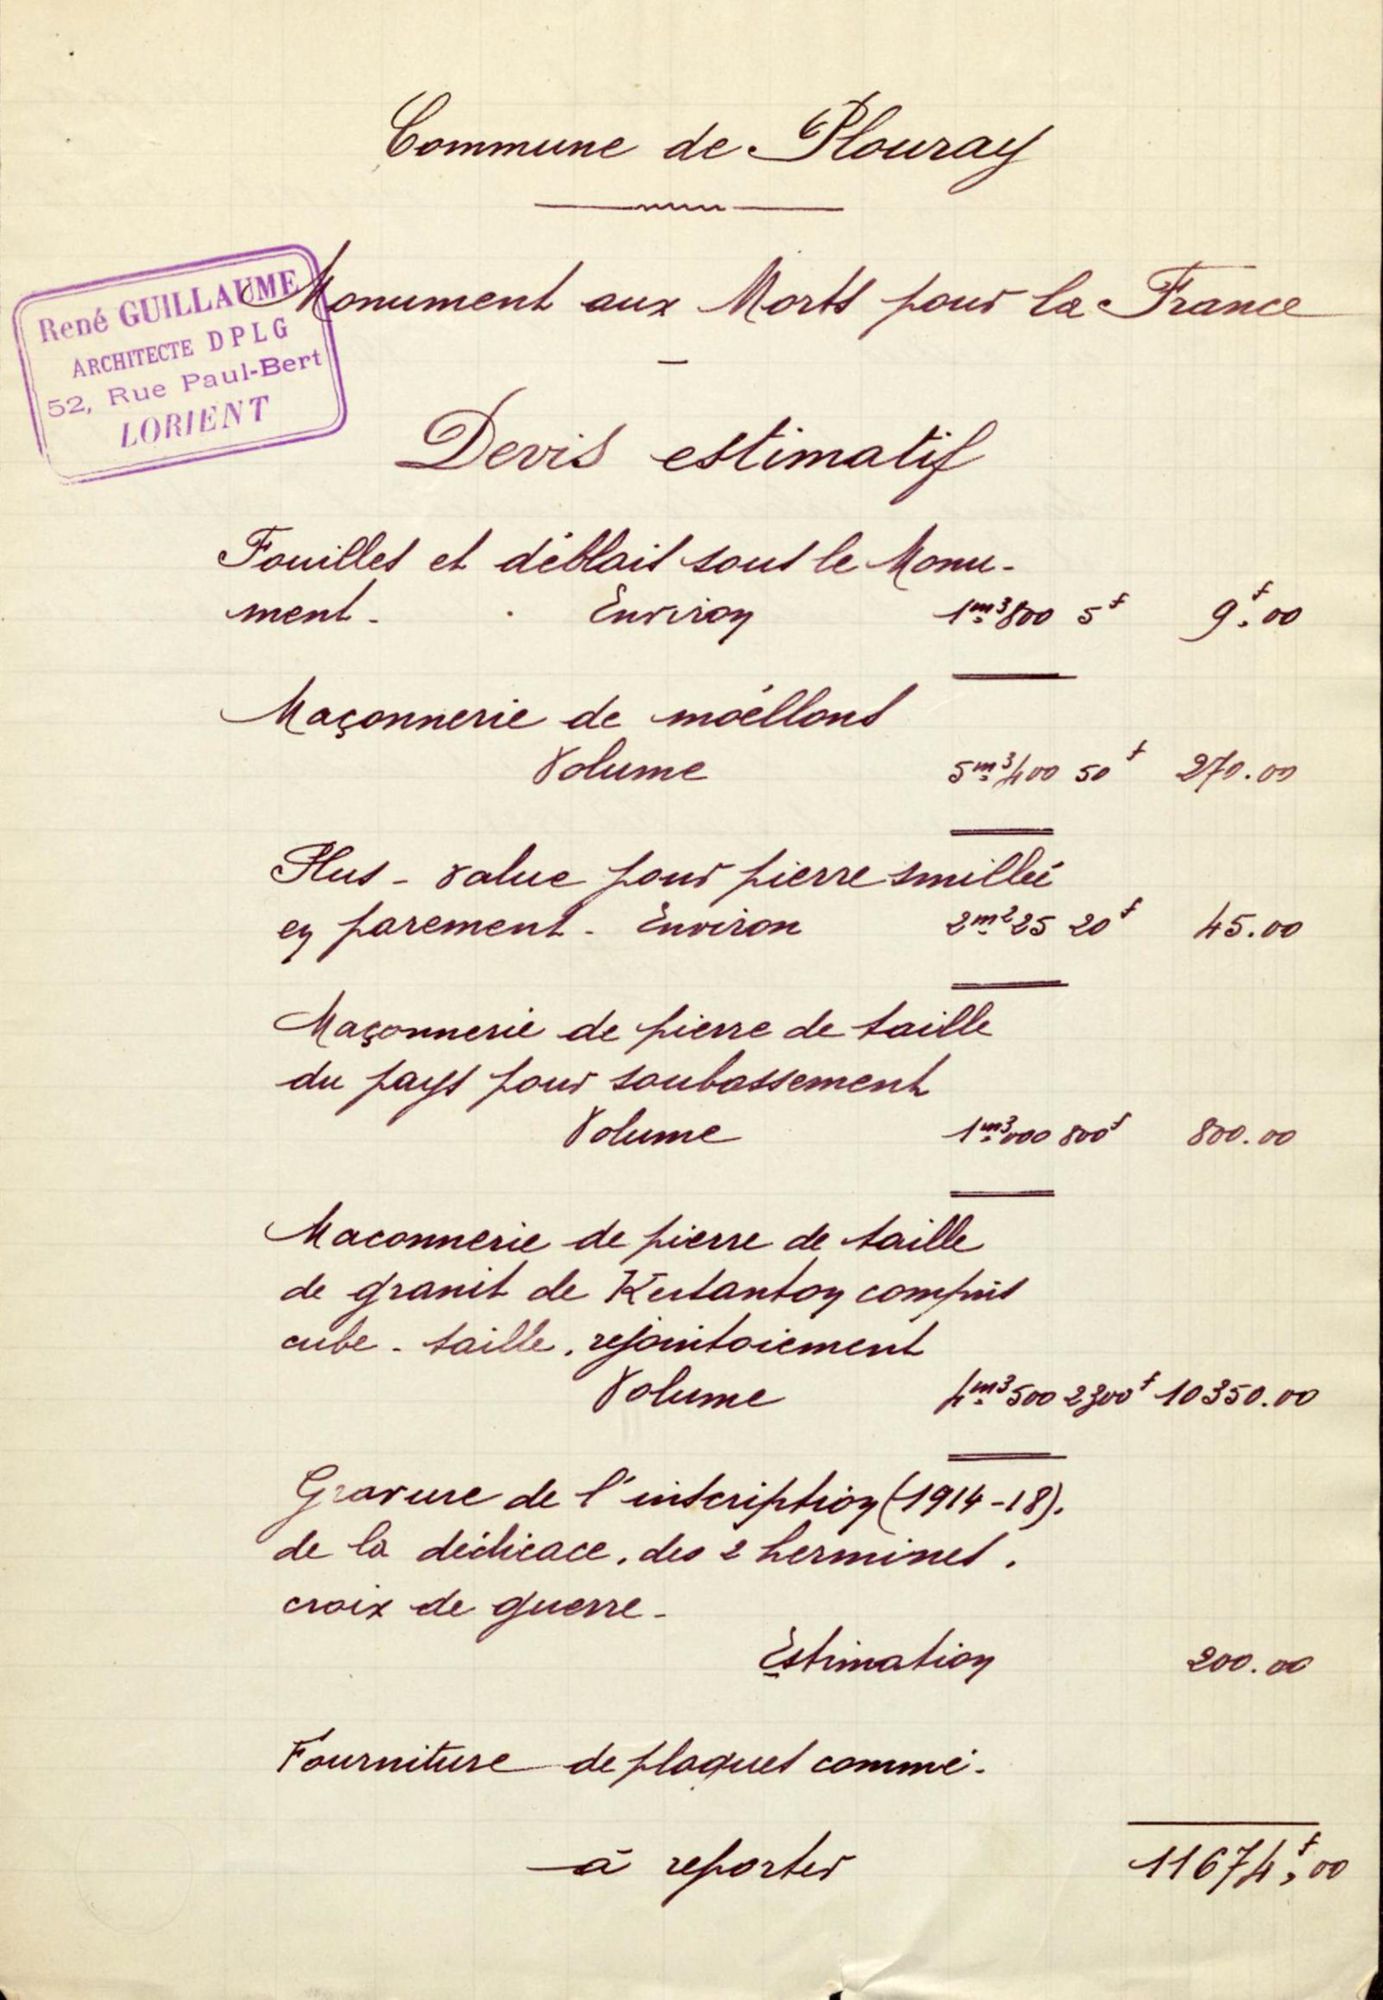 Commune de Plouray
René GUILLAUME
ARCHITECTE DPLG
52, Rue Paul-Bert
LORIENT
Monument aux Morts pour la France
Devis estimatif
Fouilles et déblais sous le Monu-
ment - Environ 1m³800 5f 9f,00
Maçonnerie de moëllons
Volume 5m³400 50f 270.00
Plus-value pour pierre smillée
en parement - Environ 2m²25 20f 45.00
Maçonnerie de pierre de taille
du pays pour soubassement
Volume 1m³000 800f 800.00
Maconnerie de pierre de taille
de granit de Kersanton compris
cube - taille, rejointoiement
Volume 4m³500 2300f 10350.00
Gravure de l'inscription (1914-18).
de la dédicace, des 2 hermines,
croix de guerre -
Estimation 200.00
Fourniture de plaques commé-
à reporter 11674f,00